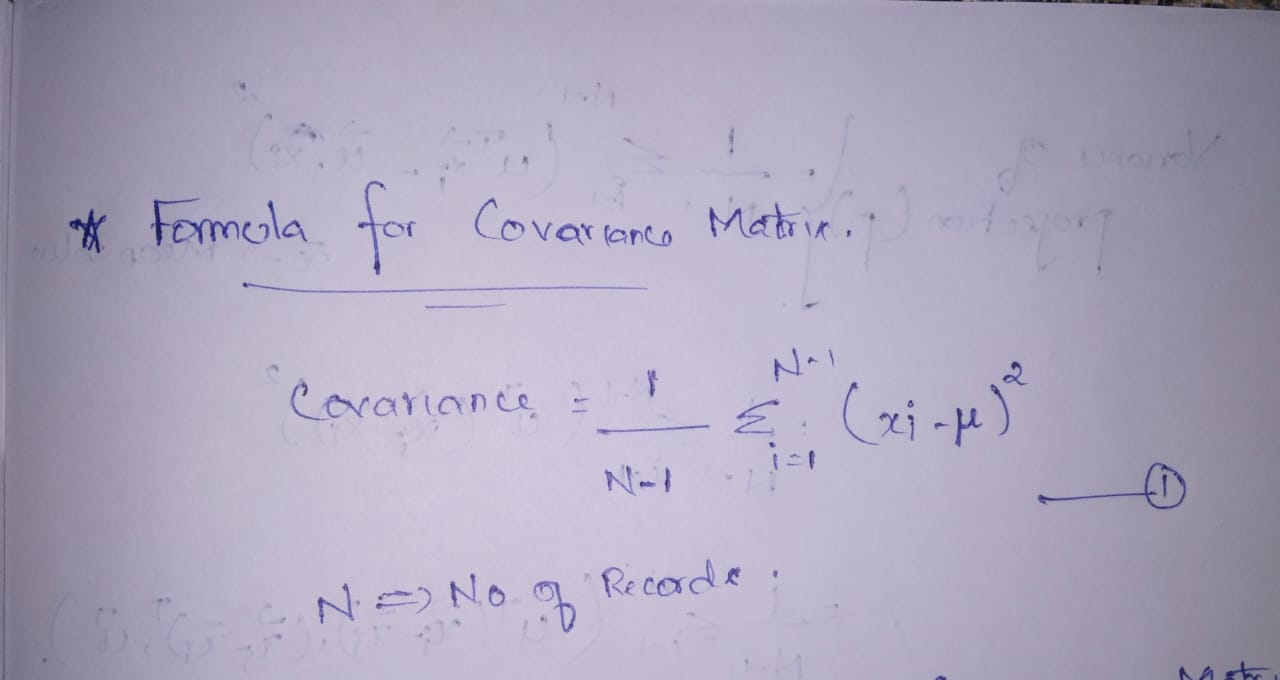 * Formula for Covariance Matrix.
Covariance = 1/N-1 Σ i=1 N-1 (xi - μ)² ——①
N => No of Records.